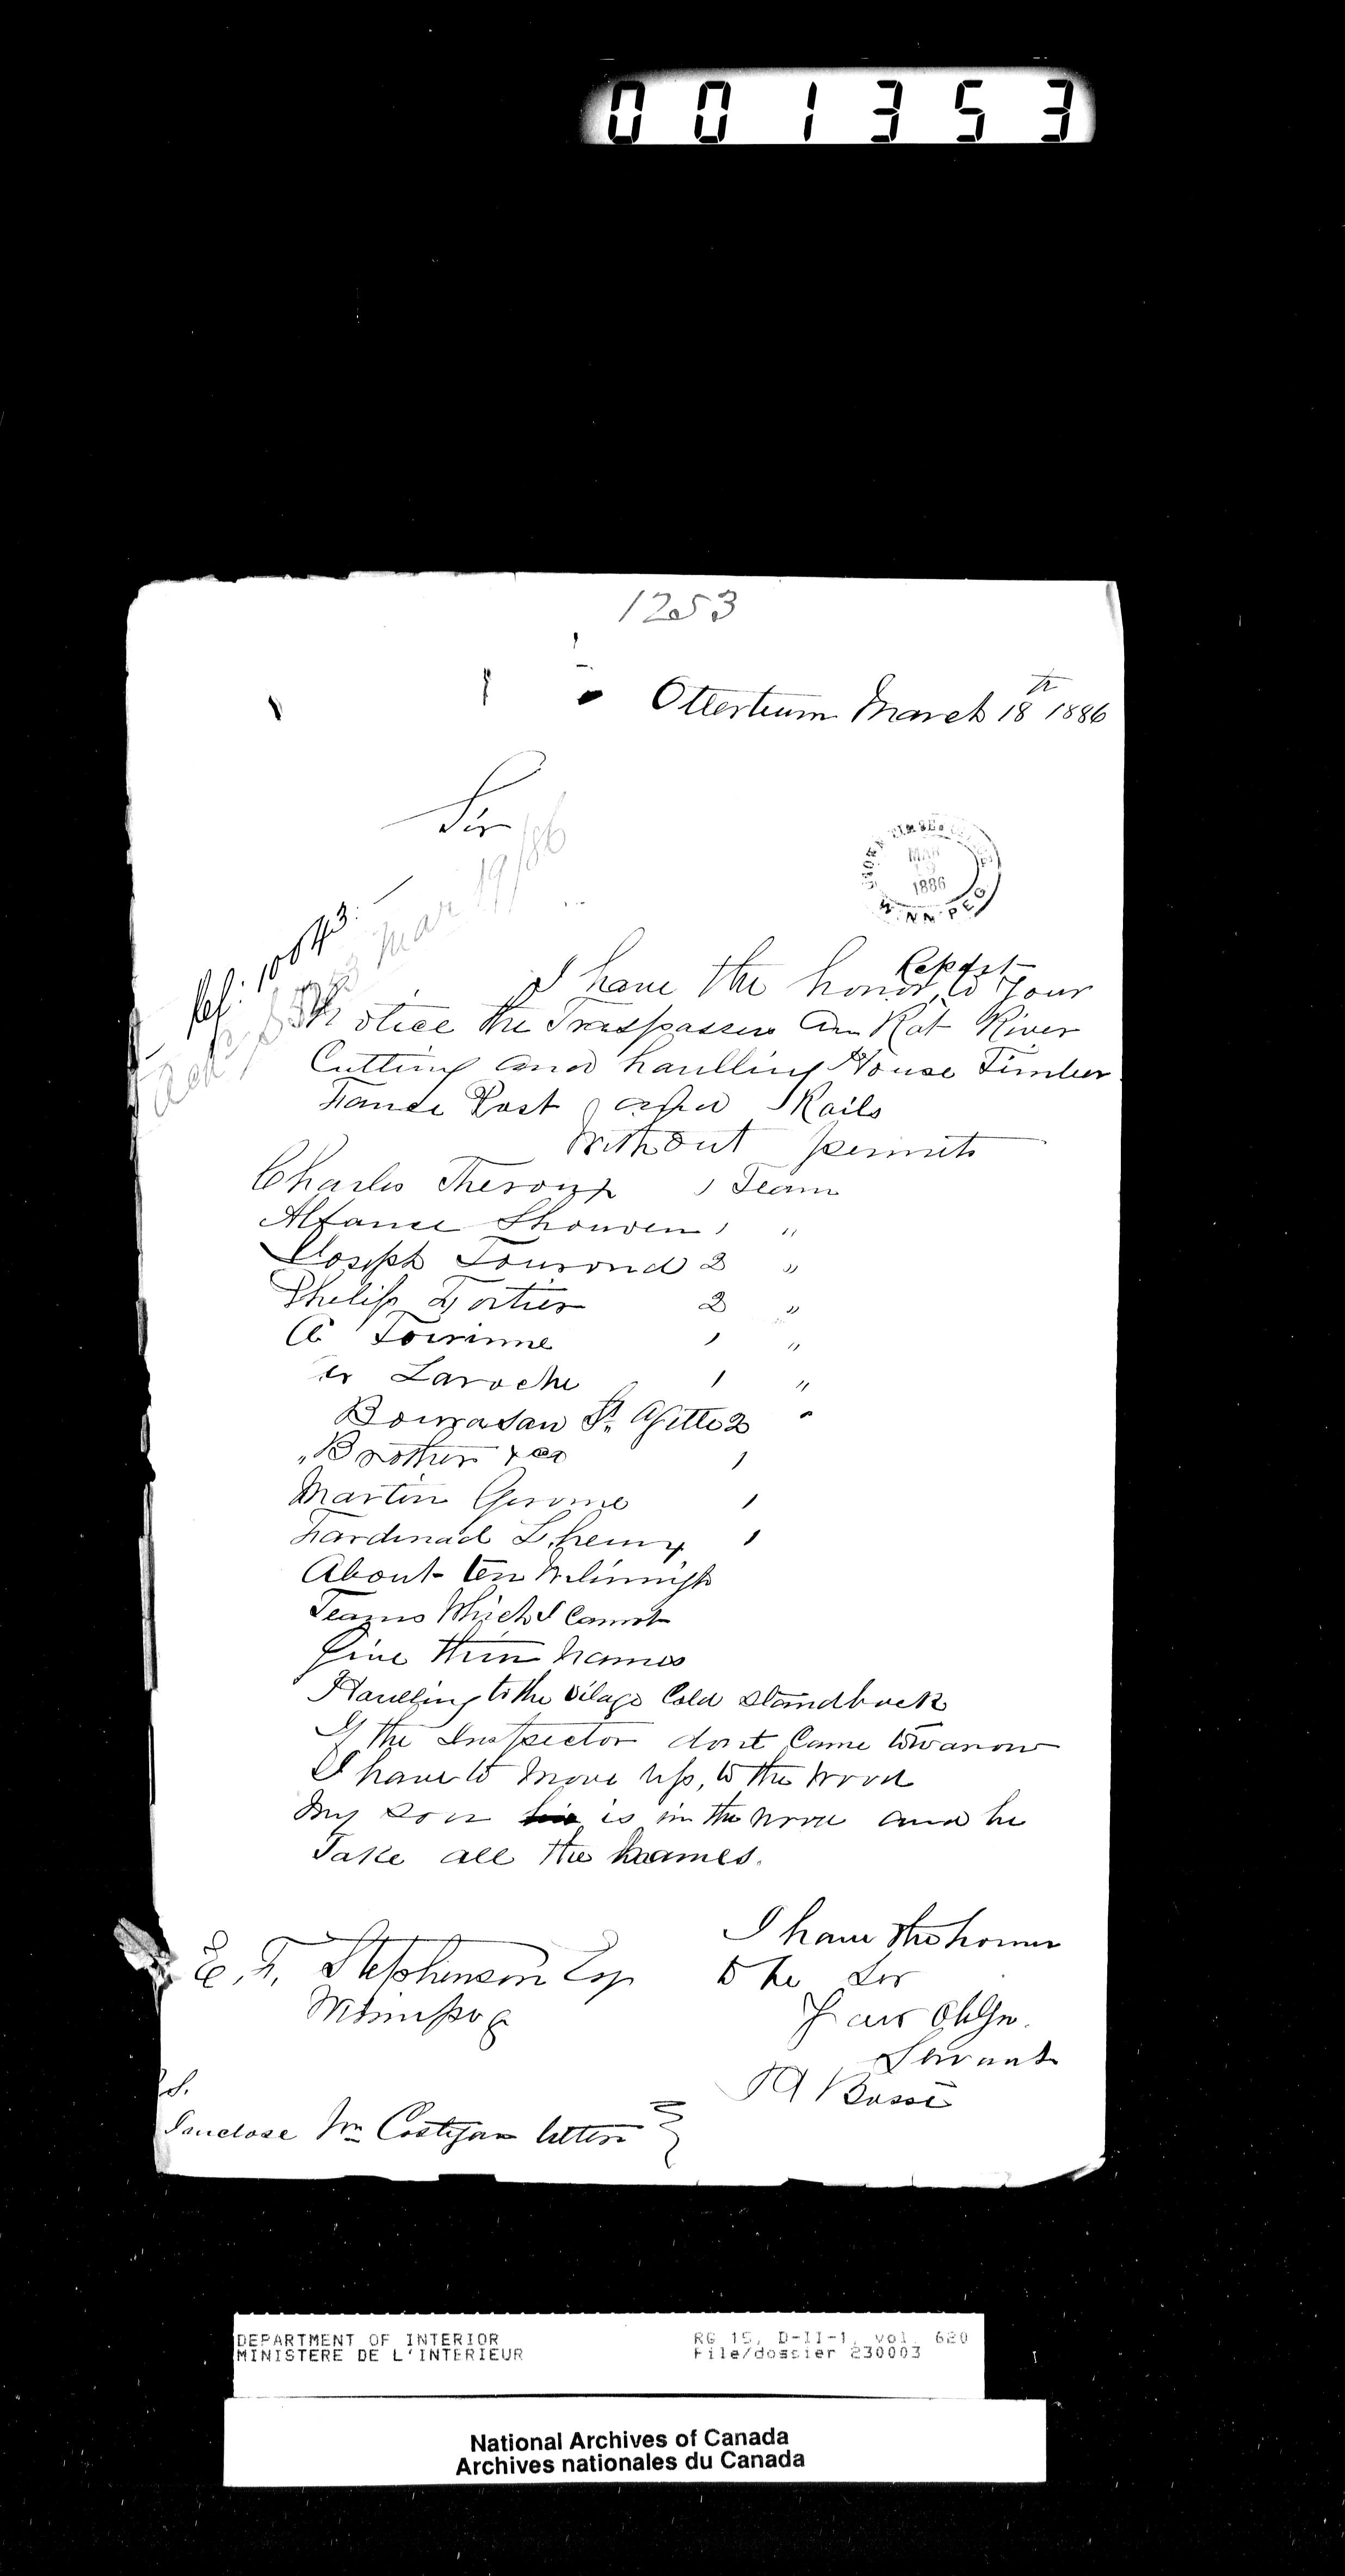 001353
1253
Otterburn March 18th 1886
Sir
MAR
1886
WINNIPEG
Ref: 10643
Mar 19/86
I have the honor, Repört to Your
Notice the Trasspassers on Rat River
Cutting and haulling House Timber
Fance Post and Rails
Without permits
Charles Theroux 1 Team
Alfance Shouven 1 "
Joseph Tourond 2 "
Philip Fortier 2 "
A Tourinne 1 "
Laroche 1 "
Bourasaw St. Agitte 2 "
"Brother & co 1
Martin Gerome 1
Fardinad L.heury 1
About ten
Teams Which I Cannot
Give thier names
Haulling to the vilage Cold Standbuck
If the Inspector don't Came towarow
I have to move up, to the wood
My son is in the wood and he
Take all the names.
I have the honor
to be Sir
Your Obgn.
Servant
Bossé
E. F. Stephenson Esq
Winnipeg
Inclose Mr Costigan letters
DEPARTMENT OF INTERIOR
MINISTERE DE L'INTERIEUR
RG 15, D-II-1, vol. 620
File/dossier 230003
National Archives of Canada
Archives nationales du Canada